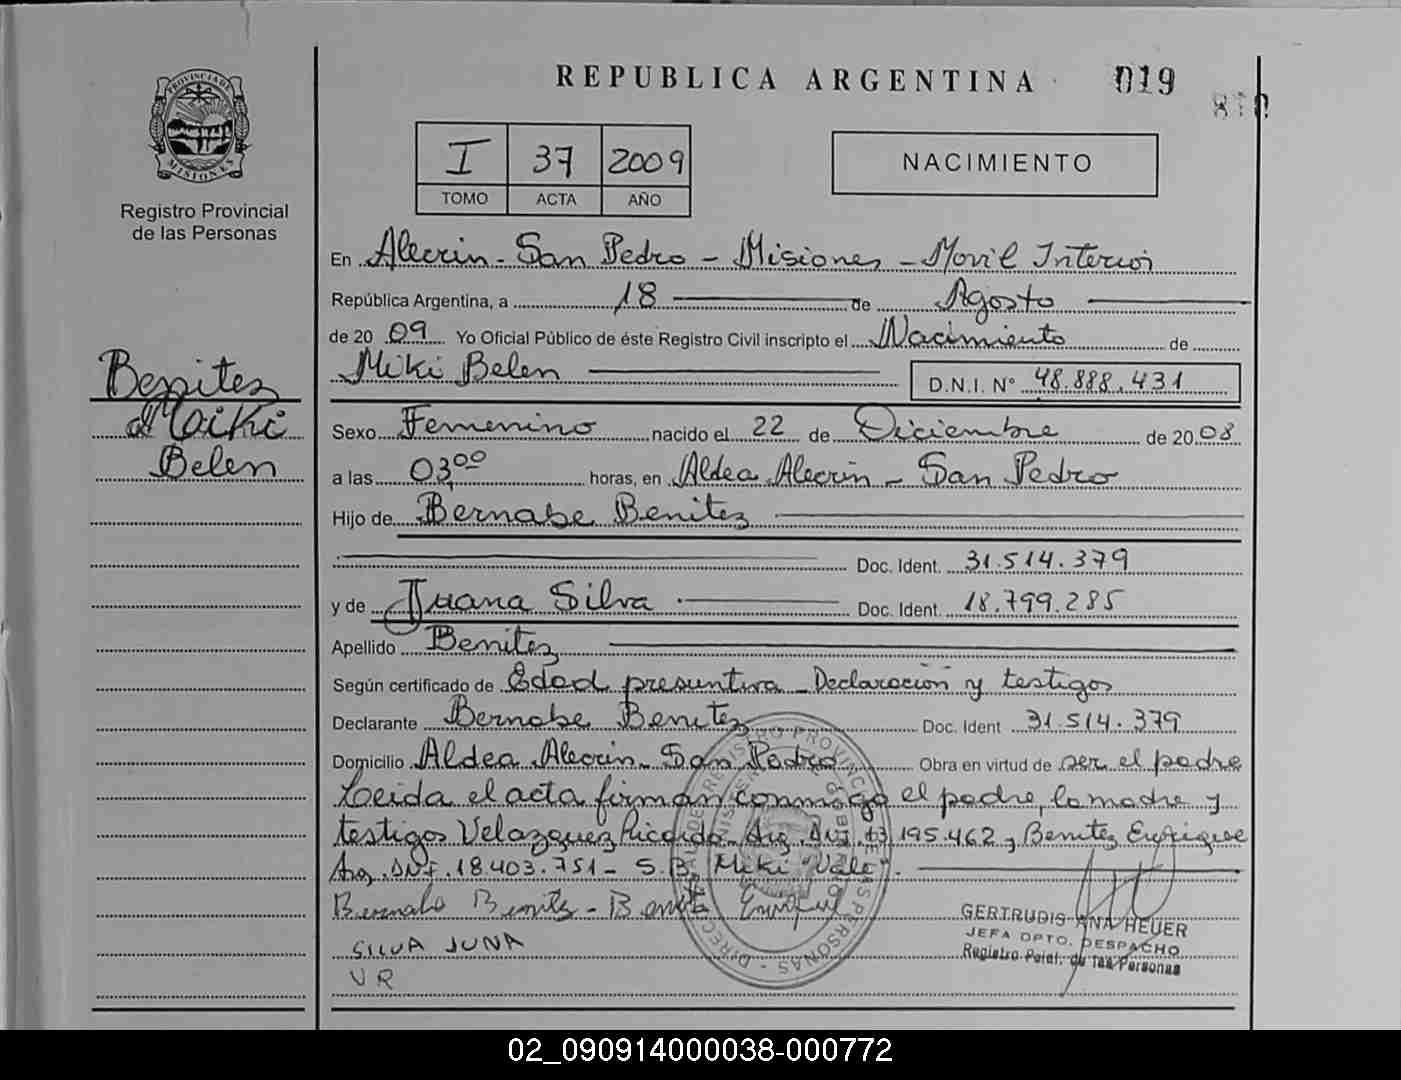 REPUBLICA ARGENTINA 019
PROVINCIA DE
MISIONES
Registro Provincial
de las Personas
I 37 2009
TOMO ACTA AÑO
NACIMIENTO
En Alecrin - San Pedro - Misiones - Movil Interior
República Argentina, a 18 de Agosto
de 20 09 Yo Oficial Público de éste Registro Civil inscripto el Nacimiento de
Miki Belen D.N.I. N° 48.888.431
Benitez
Miki
Belen
Sexo Femenino nacido el 22 de Diciembre de 20 08
a las 03,00 horas, en Aldea Alecrin - San Pedro
Hijo de Bernabe Benitez
Doc. Ident. 31.514.379
y de Juana Silva Doc. Ident. 18.799.285
Apellido Benitez
Según certificado de Edad presuntiva - Declaracion y testigos
Declarante Bernabe Benitez Doc. Ident 31.514.379
Domicilio Aldea Alecrin - San Pedro Obra en virtud de ser el padre
Leida el acta firman conmigo el padre, la madre y
testigos Velazquez Ricardo - Arg. DNI 13.195.462 y Benitez Enrique
Arg. DNI. 18.403.751 - S.B. Miki "Vale".
Bernabe Benitez - Benitez
SILVA JUNA
VR
GERTRUDIS ANA HEUER
JEFA DPTO. DESPACHO
Registro Pcial. de las Personas
02_090914000038-000772